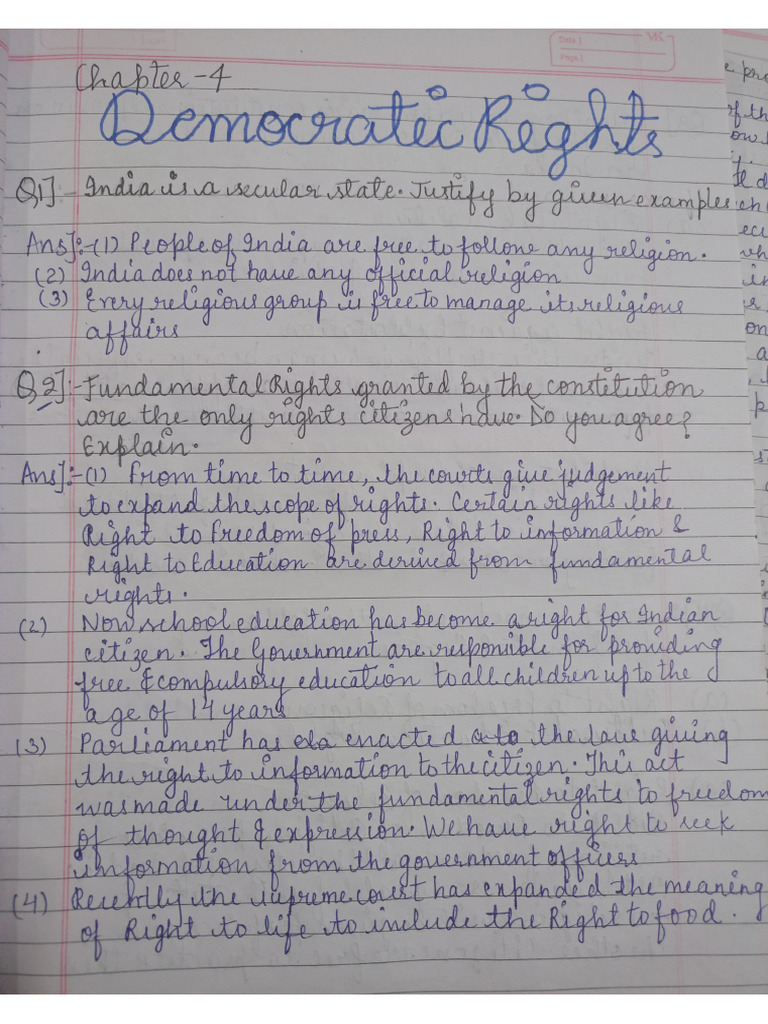 Date |
VK
Page |
Chapter-4
Democratic Rights
Q1]- India is a secular state. Justify by given examples.
Ans]:-(1) People of India are free to follow any religion.
(2) India does not have any official religion
(3) Every religious group is free to manage its religious
affairs
Q2]:- Fundamental Rights granted by the constitution
are the only rights citizens have. Do you agree?
Explain.
Ans]:-(1) From time to time, the courts give judgement
to expand the scope of rights. Certain rights like
Right to freedom of press, Right to information &
Right to Education are derived from fundamental
rights.
(2) Now school education has become a right for Indian
citizen. The Government are responsible for providing
free & compulsory education to all children up to the
age of 14 years
(3) Parliament has enacted the law giving
the right to information to the citizen. This act
was made under the fundamental rights to freedom
of thought & expression. We have right to seek
information from the government officers
(4) Recently the supreme court has expanded the meaning
of Right to life to include the Right to food.